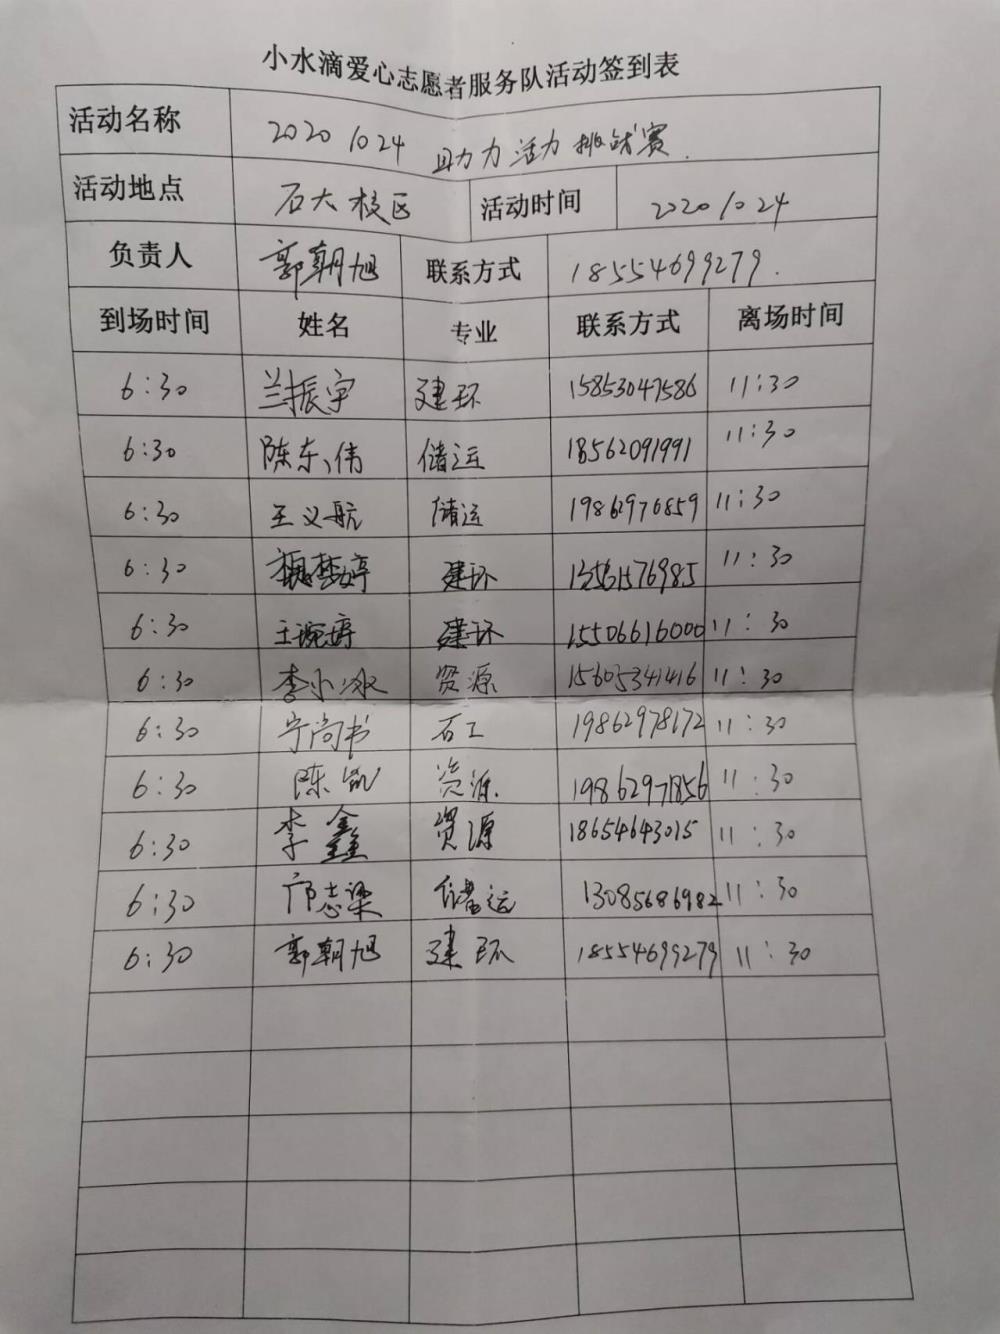 小水滴爱心志愿者服务队活动签到表
活动名称 2020 10 24 助力活力挑战赛.
活动地点 石大校区 活动时间 2020 10 24
负责人 郭朝旭 联系方式 18554699279.
到场时间 姓名 专业 联系方式 离场时间
6:30 兰振宇 建环 15853047586 11:30
6:30 陈东伟 储运 18562091991 11:30
6:30 王义航 储运 19862976859 11:30
6:30 婷 建环 13561576985 11:30
6:30 王婉婷 建环 15506616000 11:30
6:30 李小冰 资源 15605341416 11:30
6:30 宁尚书 石工 19862978172 11:30
6:30 陈凯 资源 19862971856 11:30
6:30 李鑫 资源 18654643015 11:30
6:30 邝志梁 储运 13085686982 11:30
6:30 郭朝旭 建环 18554699279 11:30